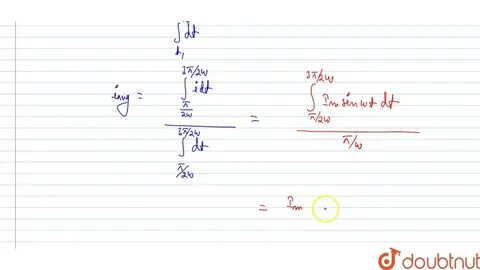 ∫dt
t₁
i avg = ∫_{π/2ω}^{3π/2ω} i dt / ∫_{π/2ω}^{3π/2ω} dt = ∫_{π/2ω}^{3π/2ω} Im sin ωt dt / π/ω
= Im
doubtnut